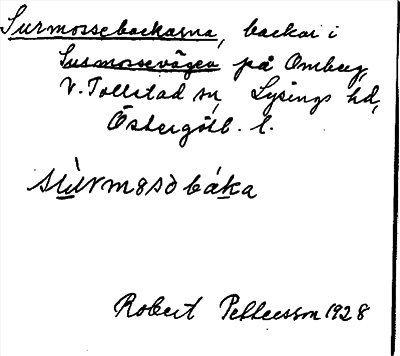 Surmossebackarna, backar i
Surmossevägen på Omberg,
V. Tollstad sn, Lysings hd,
Östergötl. l.
sùrmosobáka
Robert Pettersson 1928